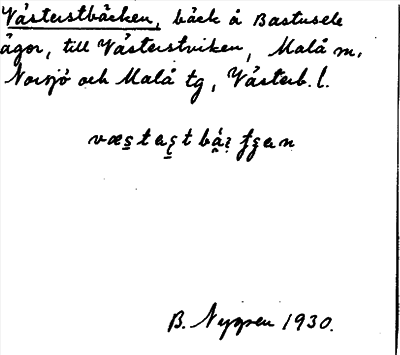 Västerstbäcken, bäck å Bastusele
ägor, till Västerstviken, Malå m.
Norsjö och Malå tg, Västerb. l.
B. Nygren 1930.